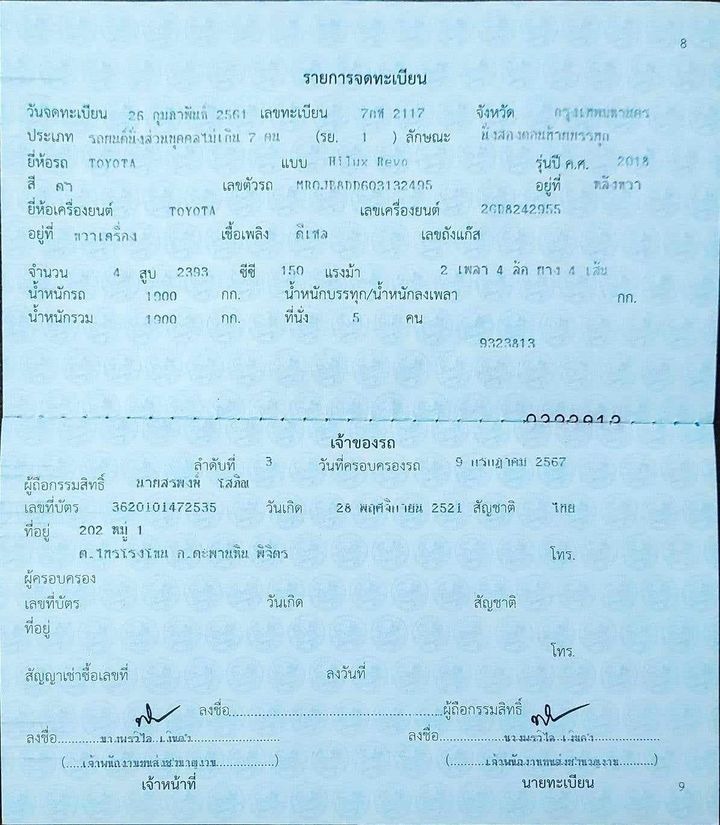 8
รายการจดทะเบียน
วันจดทะเบียน 26 กุมภาพันธ์ 2561 เลขทะเบียน 7กฬ 2117 จังหวัด กรุงเทพมหานคร
ประเภท รถยนต์นั่งส่วนบุคคลไม่เกิน 7 คน (รย. 1 ) ลักษณะ นั่งสองตอนท้ายบรรทุก
ยี่ห้อรถ TOYOTA แบบ Hilux Revo รุ่นปี ค.ศ. 2018
สี ดำ เลขตัวรถ MR0JB8DD603132495 อยู่ที่ หลังขวา
ยี่ห้อเครื่องยนต์ TOYOTA เลขเครื่องยนต์ 2GD8242955
อยู่ที่ ขวาเครื่อง เชื้อเพลิง ดีเซล เลขถังแก๊ส
จำนวน 4 สูบ 2393 ซีซี 150 แรงม้า 2 เพลา 4 ล้อ ยาง 4 เส้น
น้ำหนักรถ 1900 กก. น้ำหนักบรรทุก/น้ำหนักลงเพลา กก.
น้ำหนักรวม 1900 กก. ที่นั่ง 5 คน
9323813
เจ้าของรถ
ลำดับที่ 3 วันที่ครอบครองรถ 9 กรกฎาคม 2567
ผู้ถือกรรมสิทธิ์ นายสรพงษ์ โสภิณ
เลขที่บัตร 3620101472535 วันเกิด 28 พฤศจิกายน 2521 สัญชาติ ไทย
ที่อยู่ 202 หมู่ 1
ต.ไทรโรงโขน อ.ตะพานหิน พิจิตร โทร.
ผู้ครอบครอง
เลขที่บัตร วันเกิด สัญชาติ
ที่อยู่
โทร.
สัญญาเช่าซื้อเลขที่ ลงวันที่
ลงชื่อ ผู้ถือกรรมสิทธิ์
ลงชื่อ ลงชื่อ
(เจ้าพนักงานขนส่งชำนาญงาน) (เจ้าพนักงานขนส่งชำนาญงาน)
เจ้าหน้าที่ นายทะเบียน
9